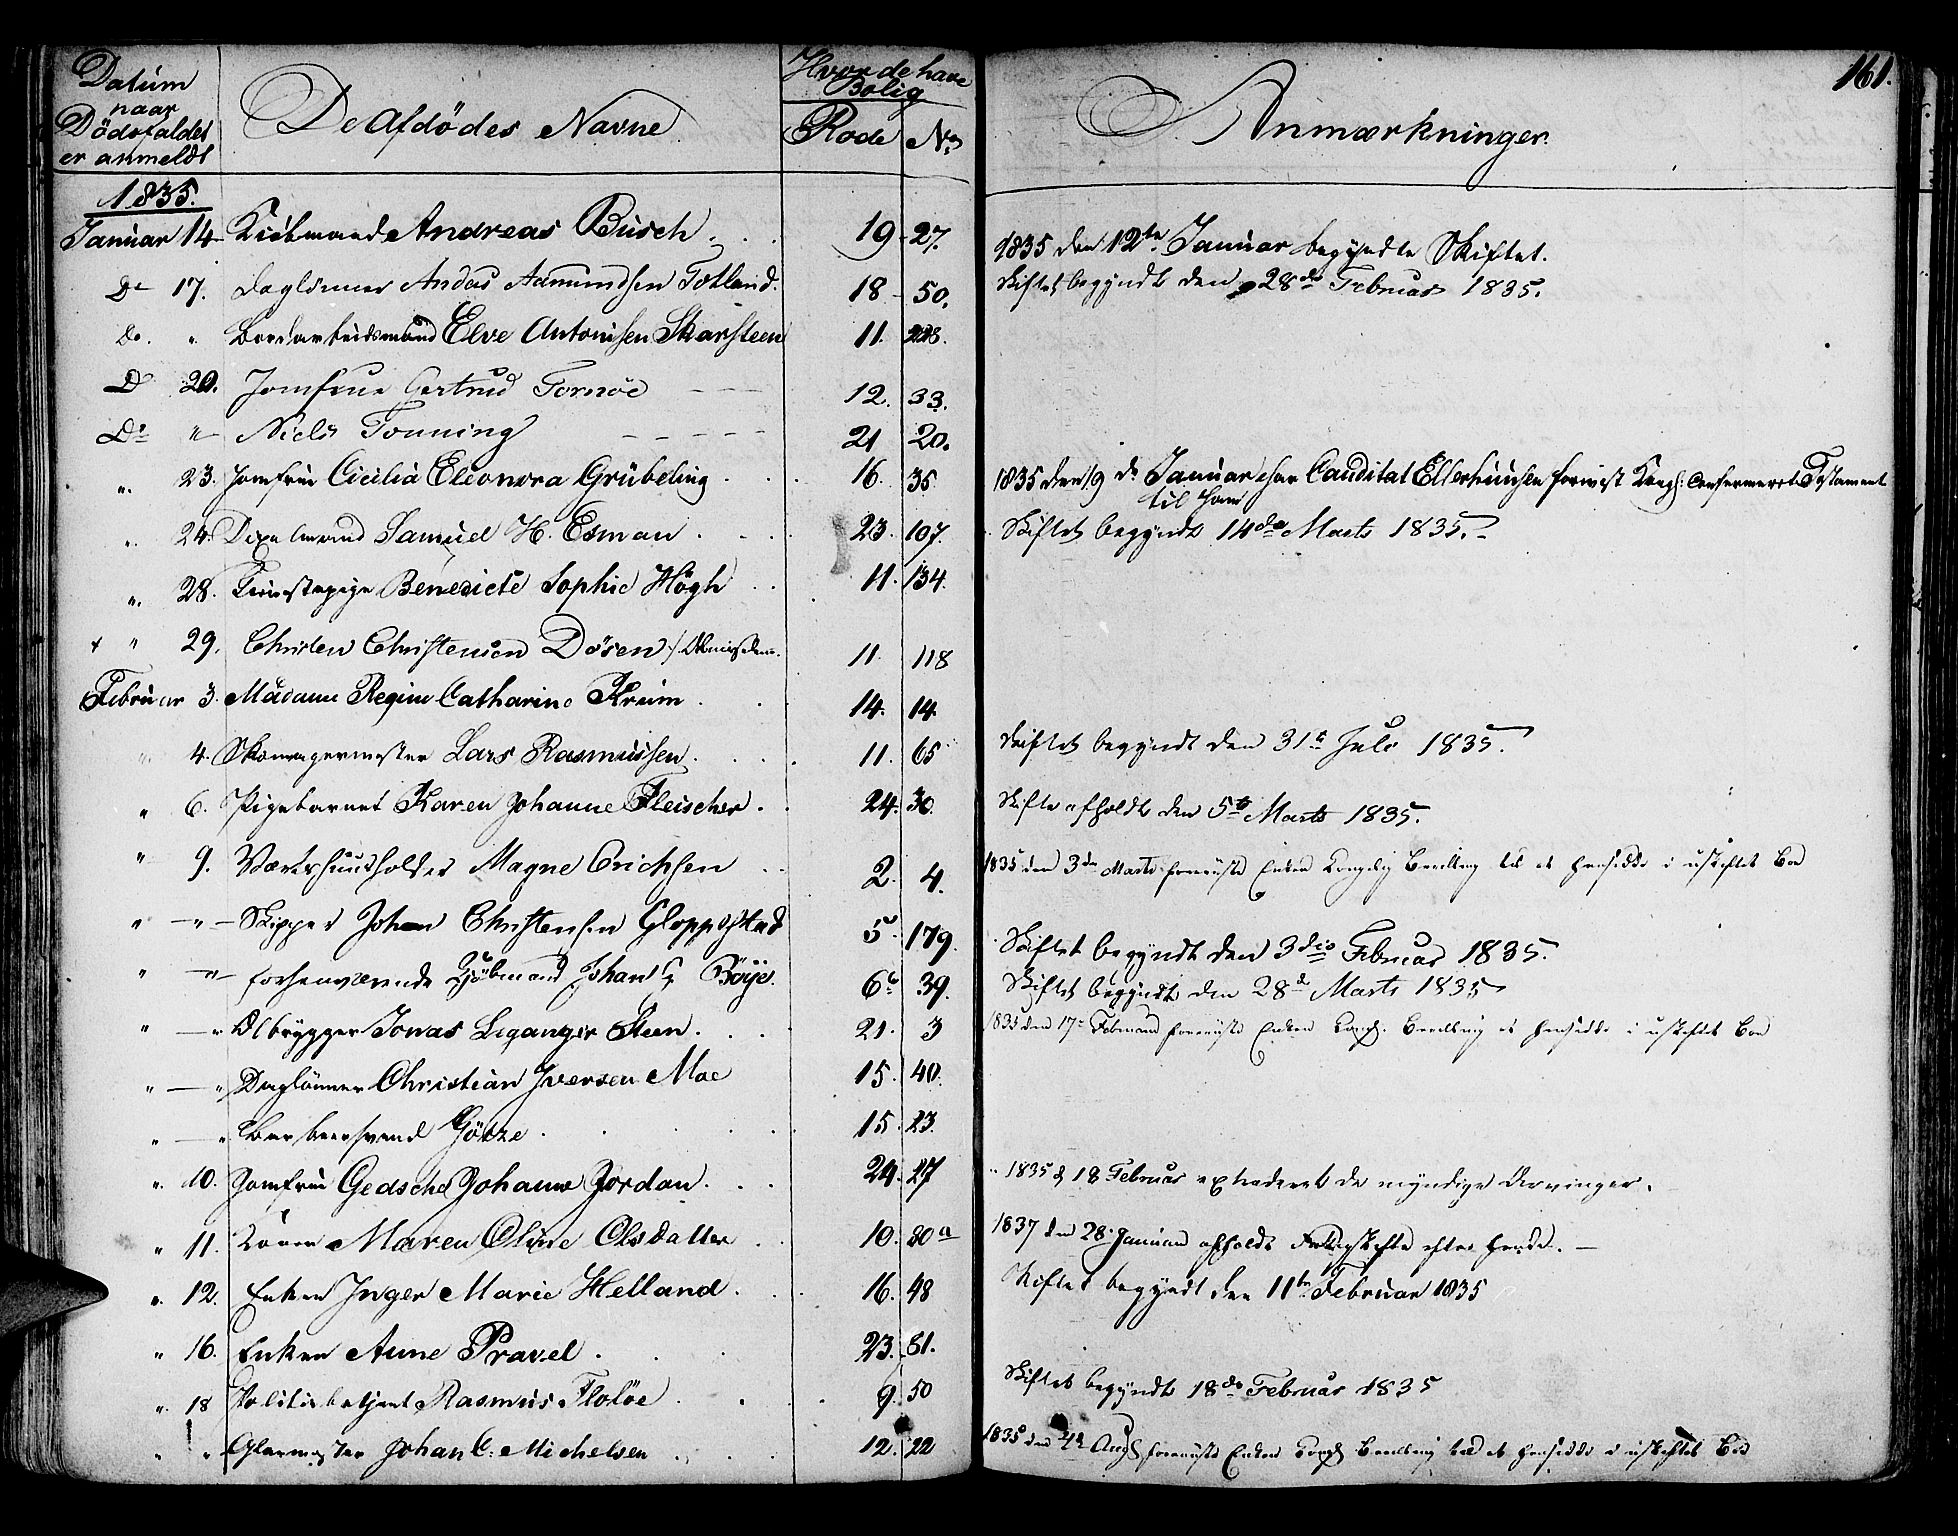 161.
Datum naar Dödsfaldet er anmeldt | De Afdødes Navne | Hvor de have Bolig Rode | No | Anmærkninger.
1835.
Januar 14 Kiöbmand Andreas Busch 19 - 27. 1835 den 12te Januar begyndte Skiftet.
Do 17. Daglönner Anders Aamundsen Totland. 18 - 50. Skiftet begyndt den 28de Februar 1835.
Do. " Bordarbeidsmand Elve Antonisen Skarsteen 11. 228.
Do 20. Jomfrue Gertrud Tornöe 12. 33.
Do " Niels Tonning 21 20.
". 23. Jomfrue Cicilia Eleonora Grübeling 16. 35 1835 den 19de Januar har Canditat Ellerhuusen foreviist Kongl: Confermeret Testament
til ham
". 24. Samuel H. Esman 23. 107. Skiftet begyndt 14de Marts 1835.
". 28. Tienestepige Benedicte Sophie Högh 11. 134.
+ " 29. Christen Christensen Dösen 11 118
Februar 3. Madame Regine Catharine Krum 14. 14.
" 4. Skomagermester Lars Rasmussen 11. 65 Skiftet begyndt den 31te Juli 1835.
" 6. Pigebarnet Karen Johanne Fleischer 24. 30. Skifte afholdt den 5te Marts 1835.
" 9. Værtshuusholder Magne Erichsen 2. 4. 1835 den 3die Marts foreviiste Enken Kongelig Bevilling til at hensidde i uskiftet Boe
" — " — Skipper Johan Christensen Gloppestad 5. 179. Skiftet begyndt den 3die Februar 1835.
" — " — forhenværende Kjöbmand Johan G Böye. 6c 39. Skiftet begyndt den 28de Marts 1835
" — " Ölbrygger Jonas Leganger Steen. 21. 3 1835 den 17de Februar foreviiste Enken Kongl. Bevilling at hensidde i uskiftet Boe
" — " Daglönner Christian Iversen Moe 15. 40.
" — " Barbeersvend Götze 15. 23.
". 10. Jomfrue Gedsche Johanne Jordan. 24. 27 1835 d 18 Februar extraderet de myndige Arvinger.
" 11. Konen Maren Oline Olsdatter 10. 80a 1837 den 28. Januar afholdt Fattigskifte efter hende.
". 12. Enken Inger Marie Helland 16. 48 Skiftet begyndt den 11te Februar 1835
" 16. Enken Anne Pravel 23. 81.
". 18 Politiebetjent Rasmus Floløe 9. 50 Skiftet begyndt 18de Februar 1835
" " Glarmester Johan C. Michelsen 12. 22 1835 den 4de Aug foreviiste Enken Kongl Bevilling til at hensidde i uskiftet Boe